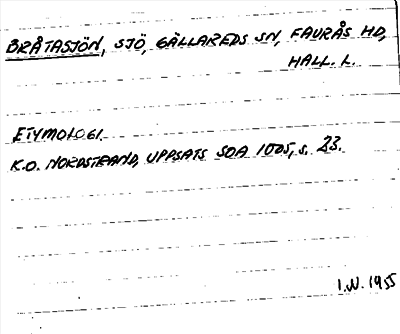 BRÅTASJÖN, SJÖ, GÄLLAREDS SN, FAURÅS HD,
HALL. L.
ETYMOLOGI.
K.O. NORDSTRAND, UPPSATS SOA 1005, s. 23.
I.N. 1955